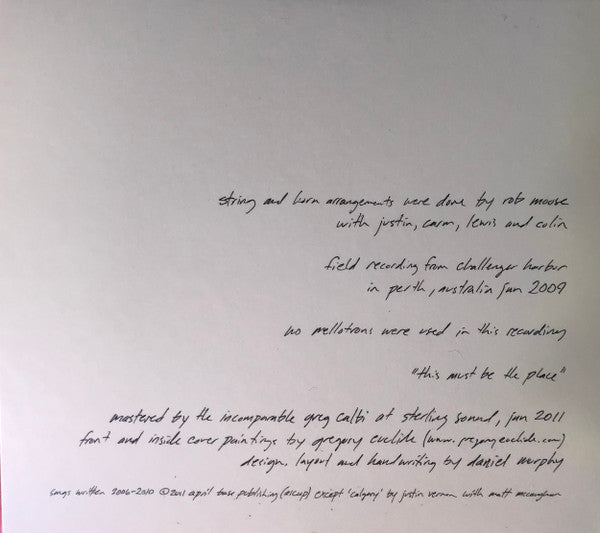 string and horn arrangements were done by rob moose
with justin, carm, lewis and colin
field recording from challenger harbor
in perth, australia jan 2009
no mellotrons were used in this recording
"this must be the place"
mastered by the incomparable greg calbi at sterling sound, jan 2011
front and inside cover paintings by gregory euclide (www.gregoryeuclide.com)
design, layout and handwriting by daniel murphy
songs written 2006-2010 ©2011 april base publishing (ascap) except 'calgary' by justin vernon with matt mccaughan